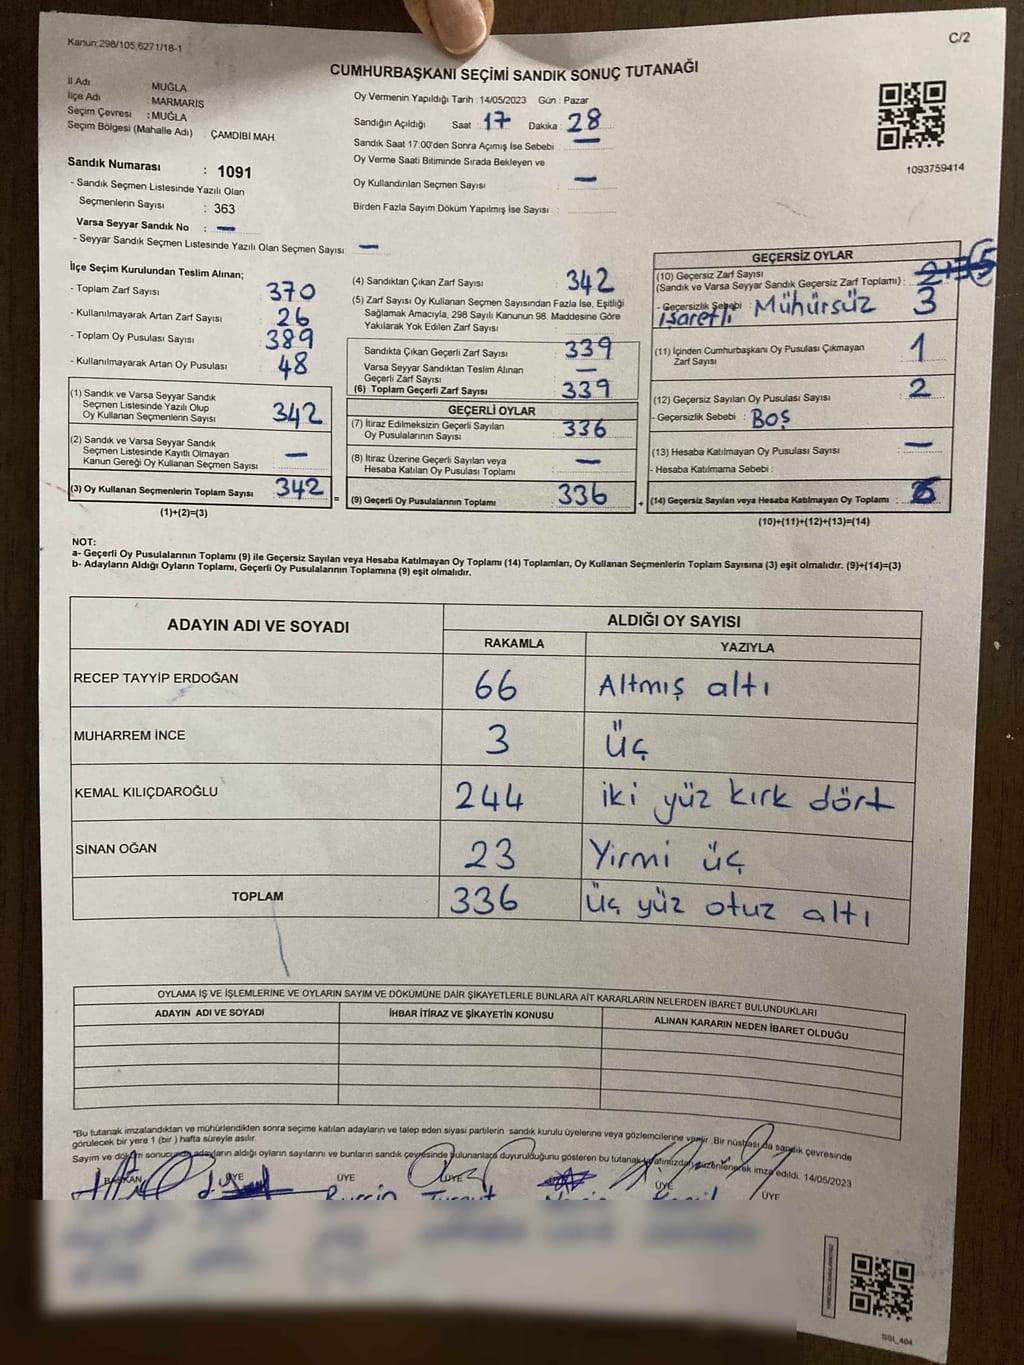 Kanun:298/105,6271/18-1
C/2
CUMHURBAŞKANI SEÇİMİ SANDIK SONUÇ TUTANAĞI
İl Adı : MUĞLA
İlçe Adı : MARMARİS
Seçim Çevresi : MUĞLA
Seçim Bölgesi (Mahalle Adı) ÇAMDİBİ MAH.
Sandık Numarası : 1091
- Sandık Seçmen Listesinde Yazılı Olan
Seçmenlerin Sayısı : 363
Varsa Seyyar Sandık No : —
- Seyyar Sandık Seçmen Listesinde Yazılı Olan Seçmen Sayısı —
Oy Vermenin Yapıldığı Tarih :14/05/2023 Gün : Pazar
Sandığın Açıldığı Saat 17 Dakika : 28
Sandık Saat 17:00'den Sonra Açımış İse Sebebi : —
Oy Verme Saati Bitiminde Sırada Bekleyen ve
Oy Kullandırılan Seçmen Sayısı : —
Birden Fazla Sayım Döküm Yapılmış İse Sayısı :
1093759414
İlçe Seçim Kurulundan Teslim Alınan;
- Toplam Zarf Sayısı : 370
- Kullanılmayarak Artan Zarf Sayısı : 26
- Toplam Oy Pusulası Sayısı : 389
- Kullanılmayarak Artan Oy Pusulası : 48
(1) Sandık ve Varsa Seyyar Sandık
Seçmen Listesinde Yazılı Olup
Oy Kullanan Seçmenlerin Sayısı : 342
(2) Sandık ve Varsa Seyyar Sandık
Seçmen Listesinde Kayıtlı Olmayan
Kanun Gereği Oy Kullanan Seçmen Sayısı : —
(3) Oy Kullanan Seçmenlerin Toplam Sayısı : 342
(1)+(2)=(3)
=
(4) Sandıktan Çıkan Zarf Sayısı : 342
(5) Zarf Sayısı Oy Kullanan Seçmen Sayısından Fazla İse, Eşitliği
Sağlamak Amacıyla, 298 Sayılı Kanunun 98. Maddesine Göre
Yakılarak Yok Edilen Zarf Sayısı :
Sandıkta Çıkan Geçerli Zarf Sayısı : 339
Varsa Seyyar Sandıktan Teslim Alınan
Geçerli Zarf Sayısı : —
(6) Toplam Geçerli Zarf Sayısı : 339
GEÇERLİ OYLAR
(7) İtiraz Edilmeksizin Geçerli Sayılan
Oy Pusulalarının Sayısı : 336
(8) İtiraz Üzerine Geçerli Sayılan veya
Hesaba Katılan Oy Pusulası Toplamı : —
(9) Geçerli Oy Pusulalarının Toplamı : 336
+
GEÇERSİZ OYLAR
(10) Geçersiz Zarf Sayısı
(Sandık ve Varsa Seyyar Sandık Geçersiz Zarf Toplamı) :
- Geçersizlik Sebebi : Mühürsüz 3
işaretli
(11) İçinden Cumhurbaşkanı Oy Pusulası Çıkmayan
Zarf Sayısı : 1
(12) Geçersiz Sayılan Oy Pusulası Sayısı : 2
- Geçersizlik Sebebi : BOŞ
(13) Hesaba Katılmayan Oy Pusulası Sayısı : —
- Hesaba Katılmama Sebebi :
(14) Geçersiz Sayılan veya Hesaba Katılmayan Oy Toplamı : 6
(10)+(11)+(12)+(13)=(14)
NOT:
a- Geçerli Oy Pusulalarının Toplamı (9) ile Geçersiz Sayılan veya Hesaba Katılmayan Oy Toplamı (14) Toplamları, Oy Kullanan Seçmenlerin Toplam Sayısına (3) eşit olmalıdır. (9)+(14)=(3)
b- Adayların Aldığı Oyların Toplamı, Geçerli Oy Pusulalarının Toplamına (9) eşit olmalıdır.
ADAYIN ADI VE SOYADI ALDIĞI OY SAYISI
RAKAMLA YAZIYLA
RECEP TAYYİP ERDOĞAN 66 Altmış altı
MUHARREM İNCE 3 üç
KEMAL KILIÇDAROĞLU 244 iki yüz kırk dört
SİNAN OĞAN 23 Yirmi üç
TOPLAM 336 üç yüz otuz altı
OYLAMA İŞ VE İŞLEMLERİNE VE OYLARIN SAYIM VE DÖKÜMÜNE DAİR ŞİKAYETLERLE BUNLARA AİT KARARLARIN NELERDEN İBARET BULUNDUKLARI
ADAYIN ADI VE SOYADI İHBAR İTİRAZ VE ŞİKAYETİN KONUSU ALINAN KARARIN NEDEN İBARET OLDUĞU
*Bu tutanak imzalandıktan ve mühürlendikten sonra seçime katılan adayların ve talep eden siyasi partilerin sandık kurulu üyelerine veya gözlemcilerine verilir. Bir nüshası da sandık çevresinde
görülecek bir yere 1 (bir ) hafta süreyle asılır.
Sayım ve döküm sonucunda adayların aldığı oyların sayılarını ve bunların sandık çevresinde bulunanlara duyurulduğunu gösteren bu tutanak tarafımızdan düzenlenerek imza edildi. 14/05/2023
BAŞKAN ÜYE ÜYE ÜYE ÜYE ÜYE